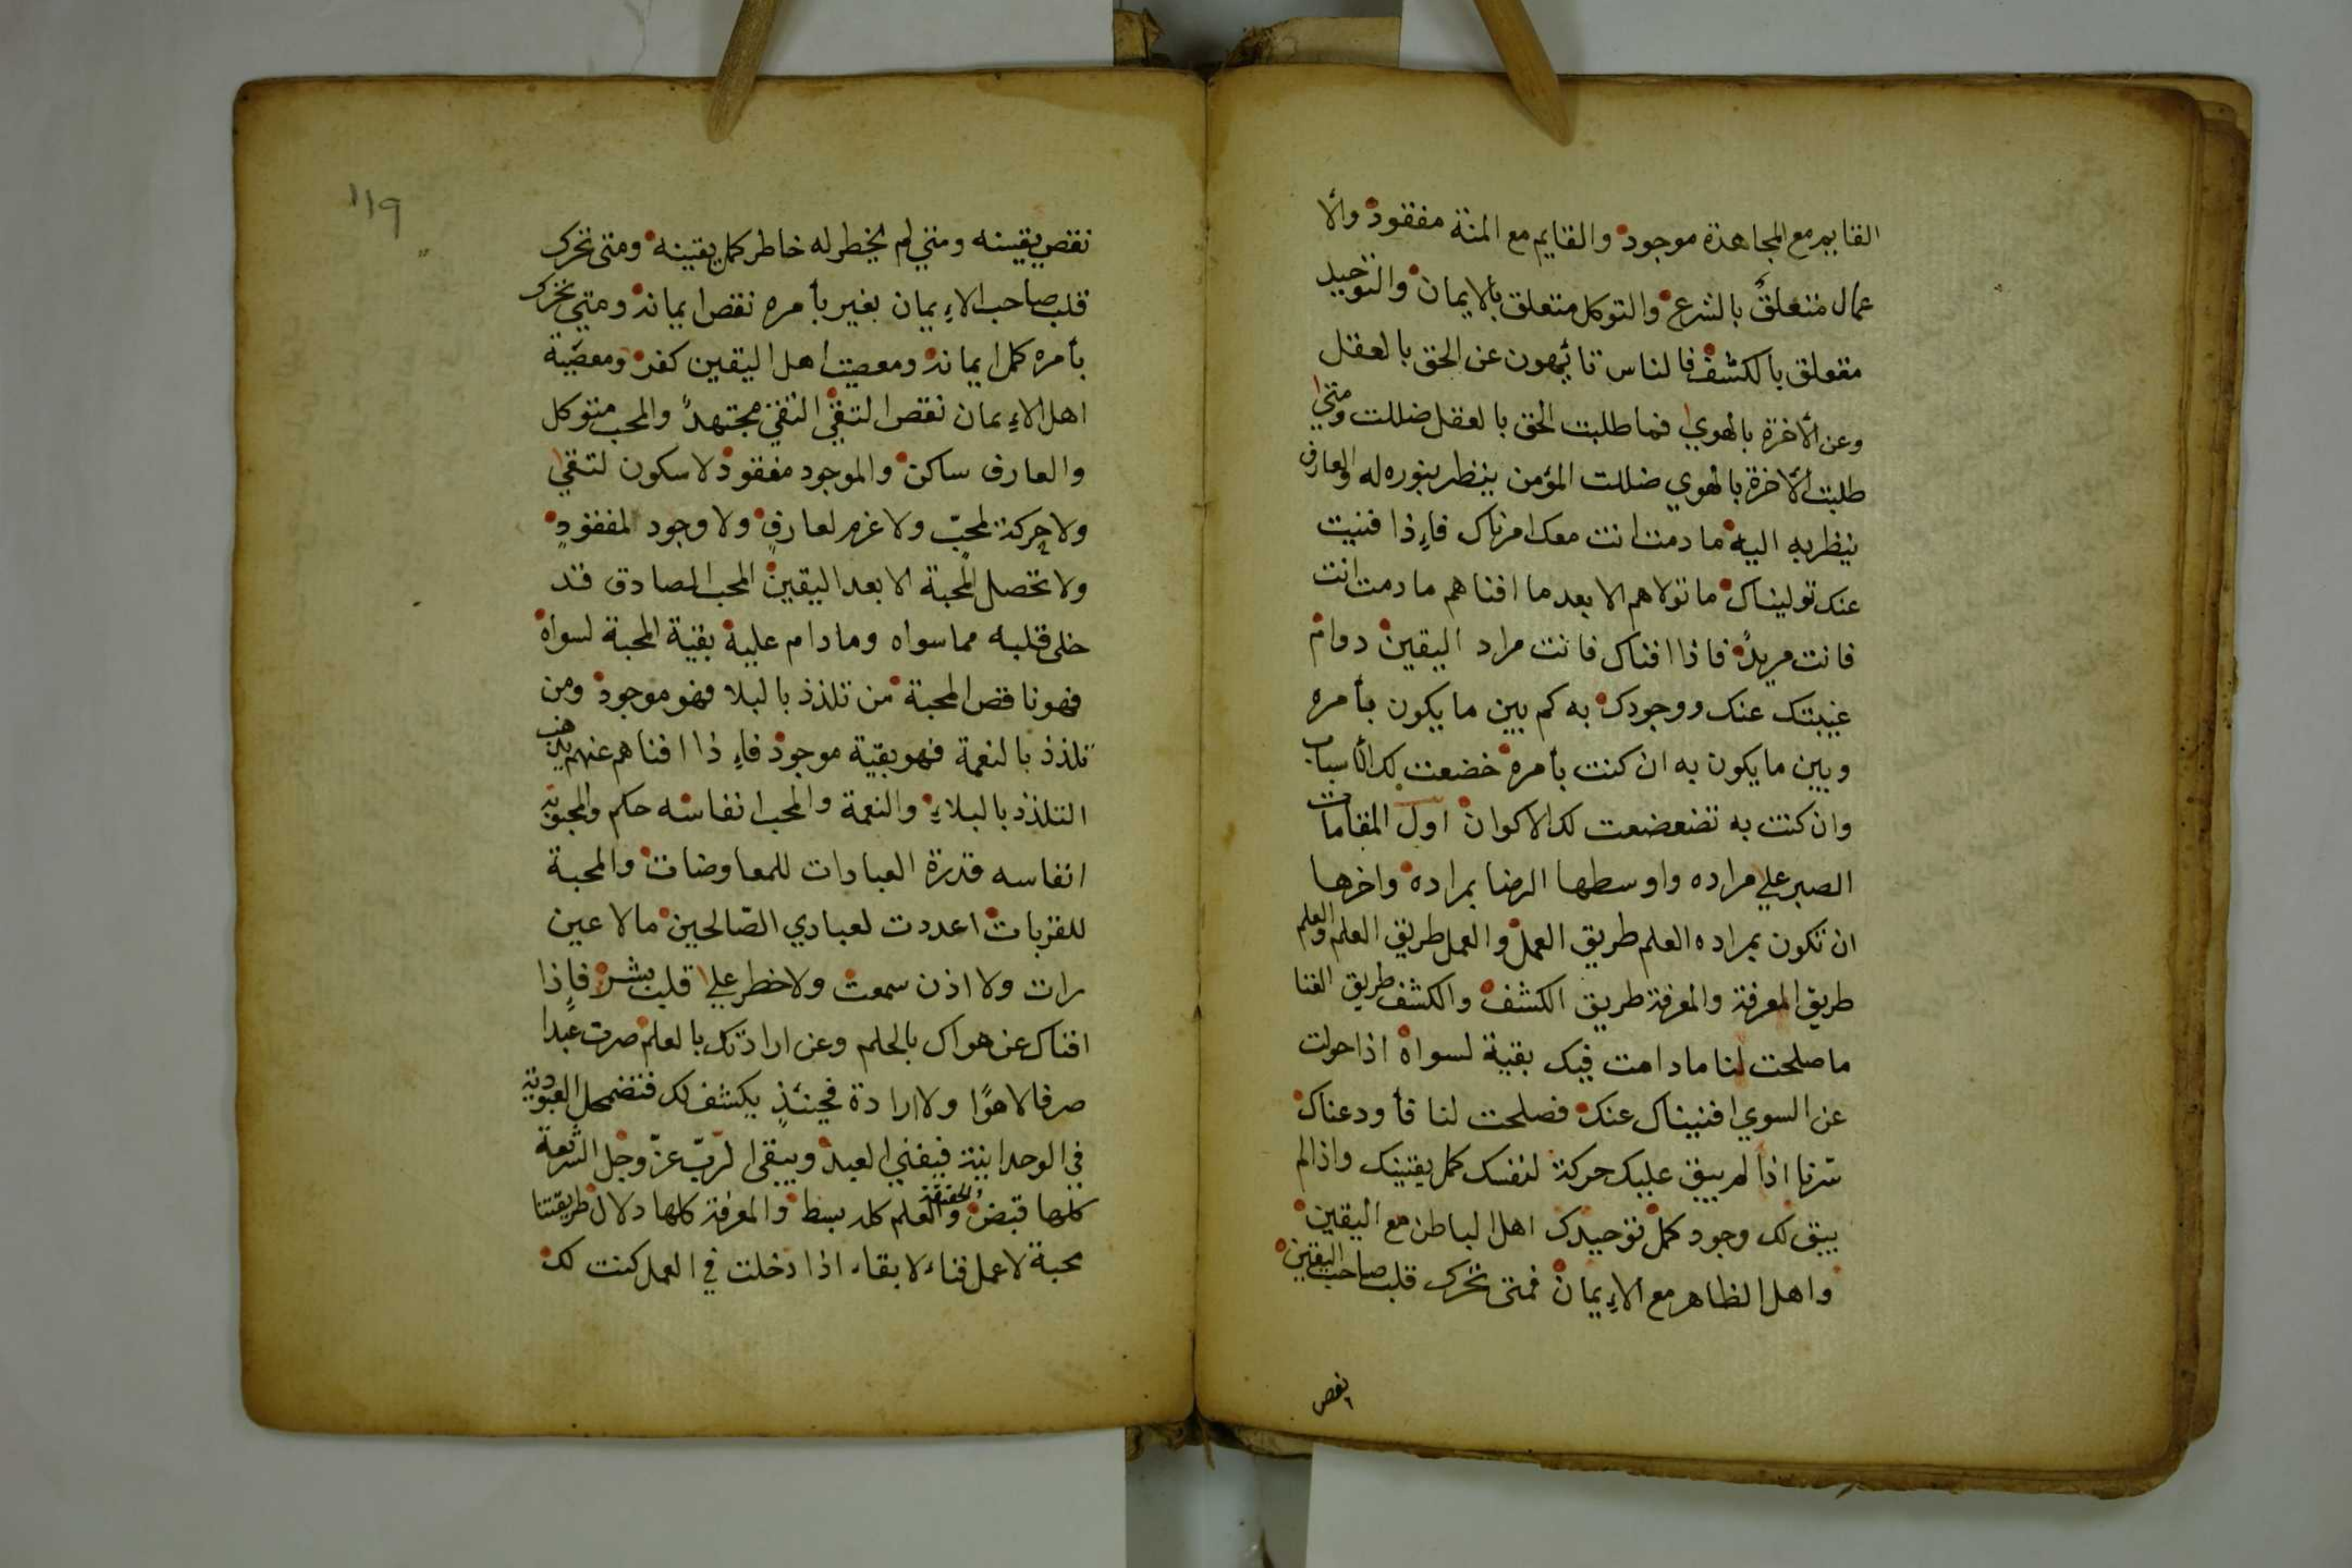 القايم مع المجاهدة موجود والقايم مع المنة مفقود والا
عمال متعلقٌ بالشرع والتوكل متعلق بالايمان والتوحيد
مقعلق بالكشف فالناس تائهون عن الحق بالعقل
وعن الأخرة بالهوي فما طلبت الحق بالعقل ضللت ومتي
طلبت الأخرة بالهوي ضللت المؤمن ينظر بنوره له والعارف
ينظر به اليه ما دمت انت معك امرناك فإذا فنيت
عنك توليناك ما تولاهم الا بعد ما افناهم ما دمت انت
فانت مريدٌ فاذا افناك فانت مراد اليقين دوام
غيبتك عنك ووجودك به كم بين ما يكون بأمره
وبين ما يكون به ان كنت بأمره خضعت لك الأسباب
وان كنت به تضعضعت لك الاكوان اول المقامات
الصبر علي مراده واوسطها الرضا بمراده واخرها
ان تكون بمراده العلم طريق العمل والعمل طريق العلم والعلم
طريق المعرفة والمعرفة طريق الكشف والكشف طريق الفنا
ما صلحت لنا ما دامت فيك بقية لسواه اذا حولت
عن السوي افنيناك عنك فصلحت لنا فأودعناك
سّرنا اذا لم يبق عليك حركة لنفسك كمل يقينك واذا لم
يبق لك وجود كمل توحيدك اهل الباطن مع اليقين
واهل الظاهر مع الإيمان فمتى تحرك قلب صاحب اليقين
نقص
١١٩
نقص يقينه ومتي لم يخطر له خاطر كمل يقينه ومتى تحرك
قلب صاحب الاءِيمان بغير بأمره نقص ايمانه ومتي تحرك
بأمره كمل ايمانه ومعصيت اهل اليقين كفر ومعصّية
اهل الاءِيمان نقص التقي التقي مجتهدٌ والمحب متوكل
والعارف ساكن والموجود مفقود لا سكون لتقي
ولا حركة لمحبّ ولا عزم لعارفٍ ولا وجود لمفقودٍ
ولا تحصل المحبة الا بعد اليقين المحب الصادق قد
خلى قلبه مما سواه وما دام عليه بقية المحبة لسواه
فهو ناقص المحبة من تلذذ بالبلا فهو موجود ومن
تلذذ بالنعمة فهو بقية موجود فاءِذا افناهم عنهم يذهب
التلذذ بالبلاءِ والنعمة والمحب انفاسه حكم والمحبوبة
انفاسه قدرة العبادات للمعاوضات والمحبة
للقربات اعددت لعبادي الصّالحين ما لا عين
رات ولا اذن سمعت ولا خطر علي قلب بشر فإذا
افناك عن هواك بالحلم وعن ارادتك بالعلم صرت عبدا
صرفا لا هوًا ولا ارادة فحينئذٍ يكشف لك فتضمحل العبودية
في الوحدانية فيفني العبد ويبقى الرّبّ عزّ وجل الشريعة
كلها قبض والحقيقة والعلم كله بسط والمعرفة كلها دلال طريقتنا
محبة لا عمل فناء لا بقاء اذا دخلت في العمل كنت لك